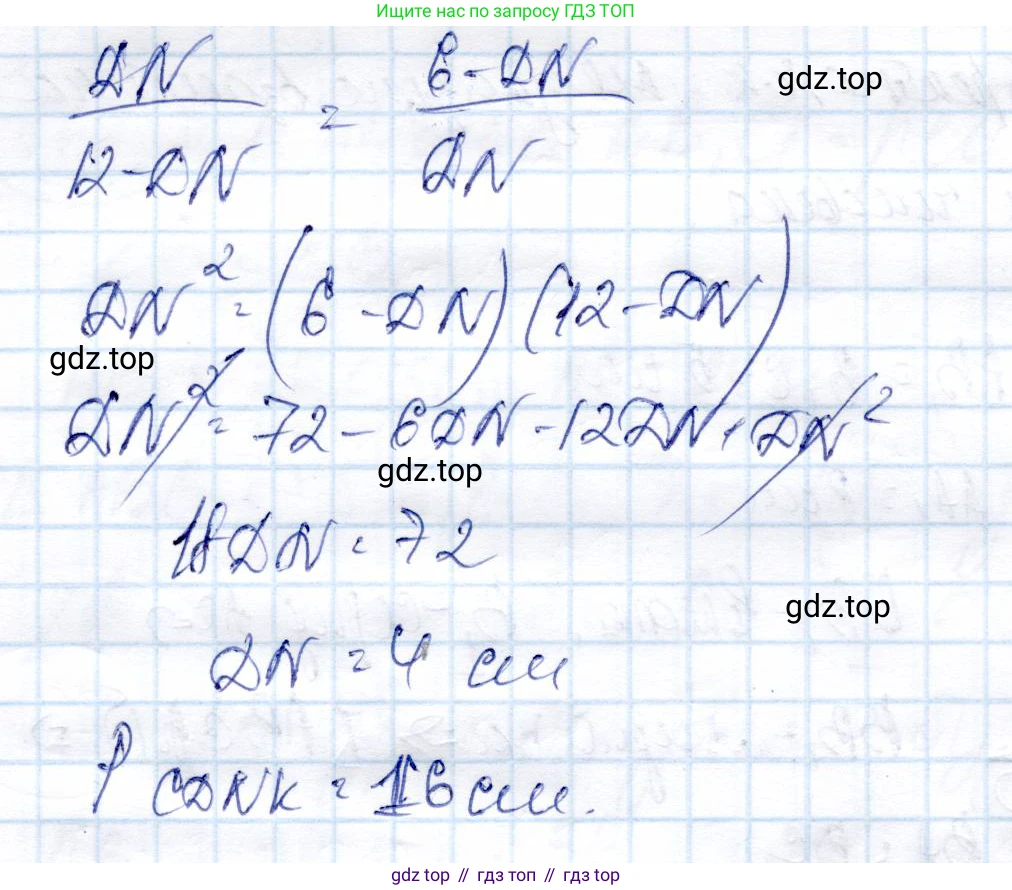 Ищите нас по запросу ГДЗ ТОП
DN / 12-DN = 6-DN / DN
gdz.top
DN² = (6-DN)(12-DN)
gdz.top
DN² = 72 - 6DN - 12DN + DN²
gdz.top
18DN = 72
gdz.top
DN = 4 см
P CDNK = 16 см.
gdz top // гдз топ // gdz top